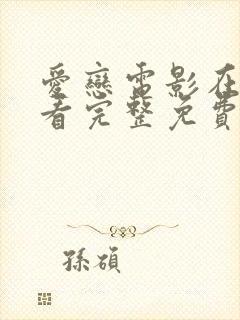 愛戀電影在
看完整免費
孫碩